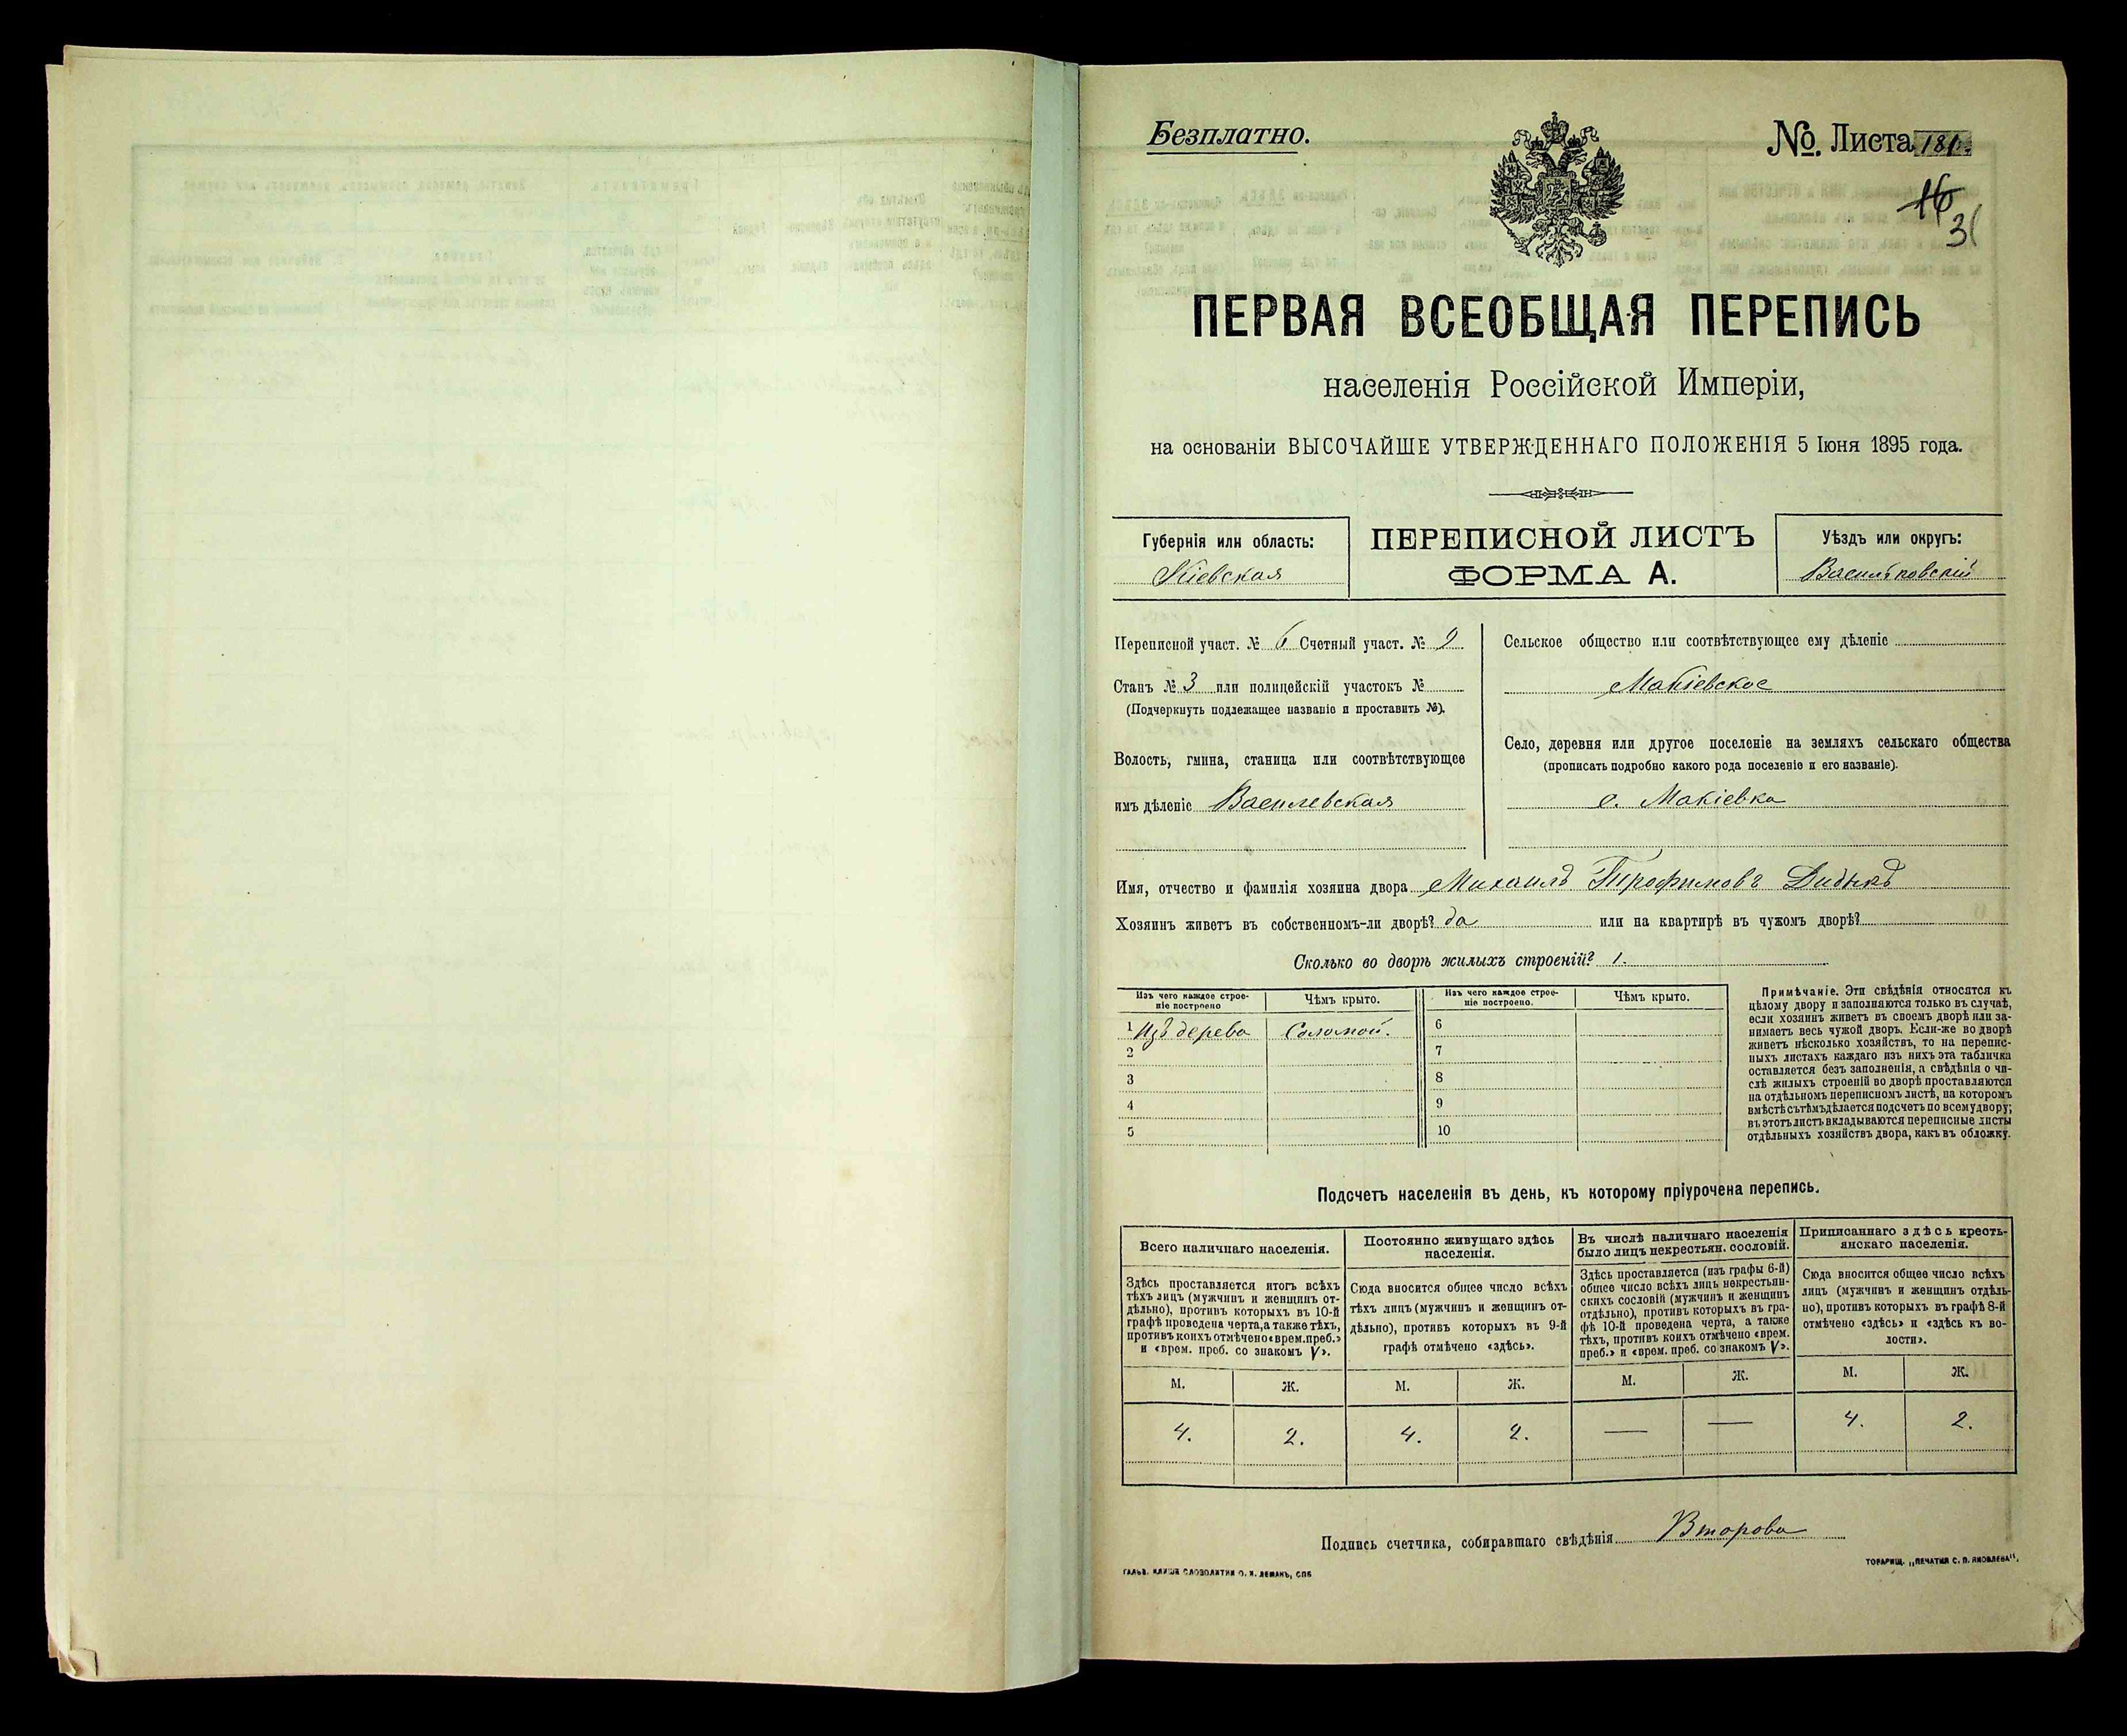 Безплатно.
№. Листа 181.
16
31
ПЕРВАЯ ВСЕОБЩАЯ ПЕРЕПИСЬ
населенія Россійской Имперіи,
на основаніи ВЫСОЧАЙШЕ УТВЕРЖДЕННАГО ПОЛОЖЕНІЯ 5 Іюня 1895 года.
Губернія или область:
Кіевская
ПЕРЕПИСНОЙ ЛИСТЪ
ФОРМА А.
Уѣздъ или округъ:
Васильковскій
Переписной участ. № 6 Счетный участ. № 9
Станъ № 3 или полицейскій участокъ №
(Подчеркнуть подлежащее названіе и проставить №).
Волость, гмина, станица или соотвѣтствующее
имъ дѣленіе Василевская
Сельское общество или соотвѣтствующее ему дѣленіе
Макіевское
Село, деревня или другое поселеніе на земляхъ сельскаго общества
(прописать подробно какого рода поселеніе и его названіе).
с. Макіевка
Имя, отчество и фамилія хозяина двора Михаилъ Трофимовъ Дидыкъ
Хозяинъ живетъ въ собственномъ-ли дворѣ? да или на квартирѣ въ чужомъ дворѣ?
Сколько во дворѣ жилыхъ строеній? 1.
Изъ чего каждое строе-
ніе построено
Чѣмъ крыто.
Изъ чего каждое строе-
ніе построено.
Чѣмъ крыто.
1 Изъ дерева Соломой. 6
2 7
3 8
4 9
5 10
Примѣчаніе. Эти свѣдѣнія относятся къ
цѣлому двору и заполняются только въ случаѣ,
если хозяинъ живетъ въ своемъ дворѣ или за-
нимаетъ весь чужой дворъ. Если-же во дворѣ
живетъ нѣсколько хозяйствъ, то на перепис-
ныхъ листахъ каждаго изъ нихъ эта табличка
оставляется безъ заполненія, а свѣдѣнія о чи-
слѣ жилыхъ строеній во дворѣ проставляются
на отдѣльномъ переписномъ листѣ, на которомъ
вмѣстѣ съ тѣмъ дѣлается подсчетъ по всему двору;
въ этотъ листъ вкладываются переписные листы
отдѣльныхъ хозяйствъ двора, какъ въ обложку.
Подсчетъ населенія въ день, къ которому пріурочена перепись.
Всего наличнаго населенія.
Здѣсь проставляется итогъ всѣхъ
тѣхъ лицъ (мужчинъ и женщинъ от-
дѣльно), противъ которыхъ въ 10-й
графѣ проведена черта, а также тѣхъ,
противъ коихъ отмѣчено «врем. преб.»
и «врем. преб. со знакомъ V».
Постоянно живущаго здѣсь
населенія.
Сюда вносится общее число всѣхъ
тѣхъ лицъ (мужчинъ и женщинъ от-
дѣльно), противъ которыхъ въ 9-й
графѣ отмѣчено «здѣсь».
Въ числѣ наличнаго населенія
было лицъ некрестьян. сословій.
Здѣсь проставляется (изъ графы 6-й)
общее число всѣхъ лицъ некрестьян-
скихъ сословій (мужчинъ и женщинъ
отдѣльно), противъ которыхъ въ гра-
фѣ 10-й проведена черта, а также
тѣхъ, противъ коихъ отмѣчено «врем.
преб.» и «врем. преб. со знакомъ V».
Приписаннаго здѣсь кресть-
янскаго населенія.
Сюда вносится общее число всѣхъ
лицъ (мужчинъ и женщинъ отдѣль-
но), противъ которыхъ въ графѣ 8-й
отмѣчено «здѣсь» и «здѣсь къ во-
лости».
М. Ж. М. Ж. М. Ж. М. Ж.
4. 2. 4. 2. — — 4. 2.
Подпись счетчика, собиравшаго свѣдѣнія Второва
ГАЛЬВ. КЛИШЕ СЛОВОЛИТНИ О. И. ЛЕМАНЪ, СПБ
ТОВАРИЩ. „ПЕЧАТНЯ С. П. ЯКОВЛЕВА".